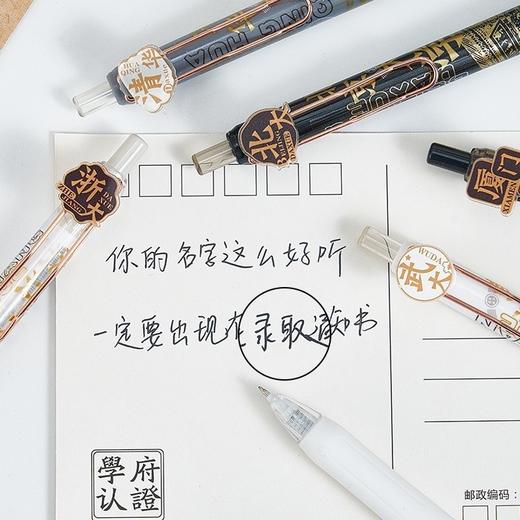 清华
HUA
QING
北大
浙大
DA
XUE
厦门
XIAMEN
WUDA
武大
你的名字这么好听
一定要出现在录取通知书
學府
认證
邮政编码: